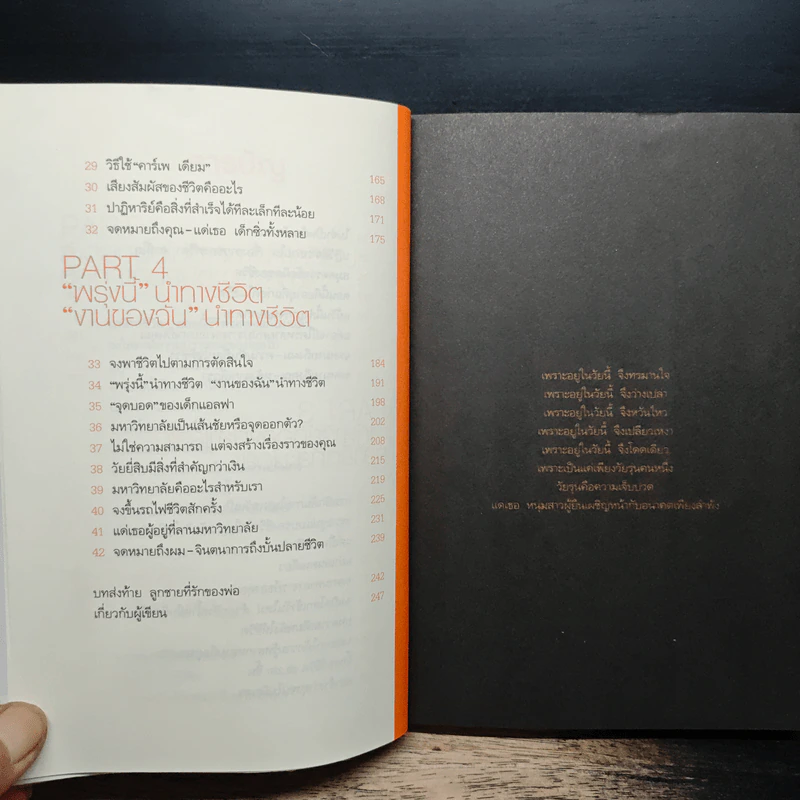 29 วิธีใช้ “คาร์เพ เดียม” 165
30 เสียงสัมผัสของชีวิตคืออะไร 168
31 ปาฏิหาริย์คือสิ่งที่สำเร็จได้ทีละเล็กทีละน้อย 171
32 จดหมายถึงคุณ-แด่เธอ เด็กซิ่วทั้งหลาย 175
PART 4
“พรุ่งนี้” นำทางชีวิต
“งานของฉัน” นำทางชีวิต
33 จงพาชีวิตไปตามการตัดสินใจ 184
34 “พรุ่งนี้”นำทางชีวิต “งานของฉัน”นำทางชีวิต 191
35 “จุดบอด”ของเด็กแอลฟา 198
36 มหาวิทยาลัยเป็นเส้นชัยหรือจุดออกตัว? 202
37 ไม่ใช่ความสามารถ แต่จงสร้างเรื่องราวของคุณ 208
38 วัยยี่สิบมีสิ่งที่สำคัญกว่าเงิน 215
39 มหาวิทยาลัยคืออะไรสำหรับเรา 219
40 จงขึ้นรถไฟชีวิตสักครั้ง 225
41 แด่เธอผู้อยู่ที่ลานมหาวิทยาลัย 231
42 จดหมายถึงผม-จินตนาการถึงบั้นปลายชีวิต 239
บทส่งท้าย ลูกชายที่รักของพ่อ 242
เกี่ยวกับผู้เขียน 247
เพราะอยู่ในวัยนี้ จึงทรมานใจ
เพราะอยู่ในวัยนี้ จึงว่างเปล่า
เพราะอยู่ในวัยนี้ จึงหวั่นไหว
เพราะอยู่ในวัยนี้ จึงเปลี่ยวเหงา
เพราะอยู่ในวัยนี้ จึงโดดเดี่ยว
เพราะเป็นแค่เพียงวัยรุ่นคนหนึ่ง
วัยรุ่นคือความเจ็บปวด
แด่เธอ หนุ่มสาวผู้ยืนเผชิญหน้ากับอนาคตเพียงลำพัง